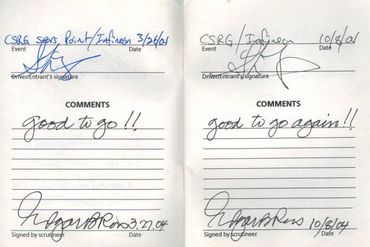 CSRG Sears Point/Infineon 3/26/04
Event Date
Driver/Entrant's signature
COMMENTS
good to go!!
3.27.04
Signed by scrutineer Date
CSRG/Infineon 10/8/04
Event Date
Driver/Entrant's signature
COMMENTS
good to go again!!
10/8/04
Signed by scrutineer Date